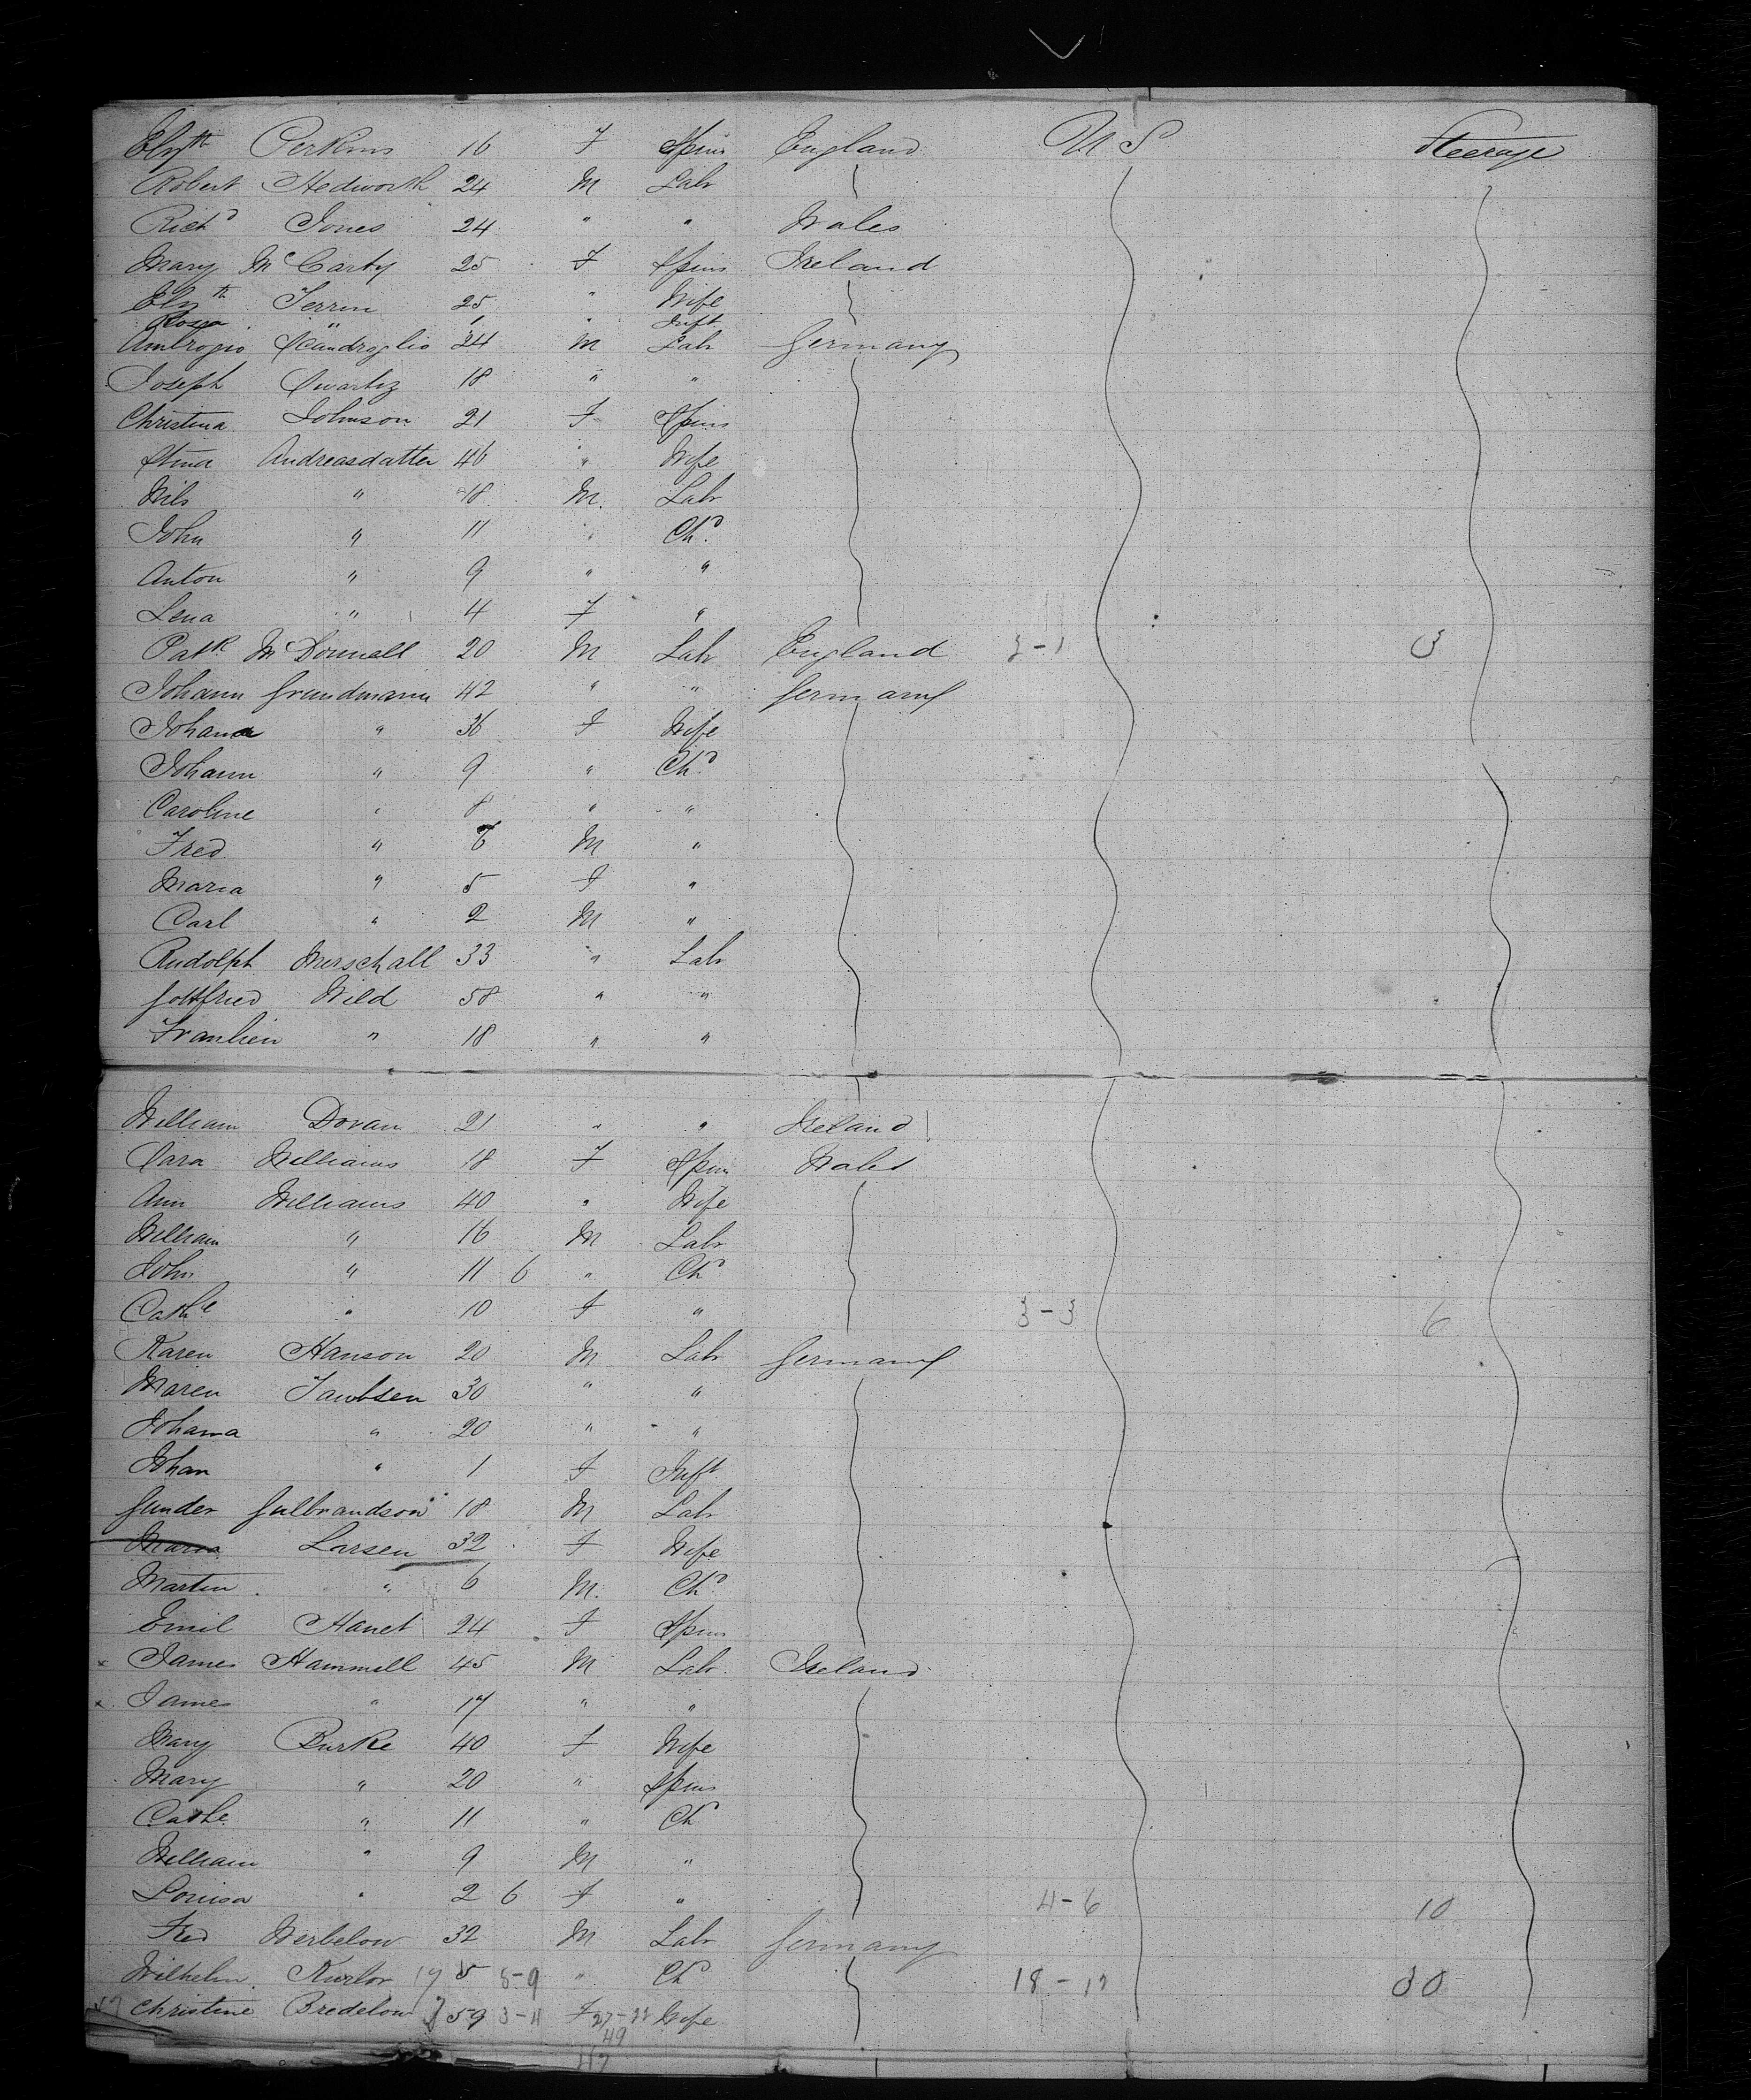 Elizth Perkins 16 F Spins England U S Steerage
Robert Hedworth 24 M Labr
Richd Jones 24 " " Wales
Mary McCarty 25 F Spins Ireland
Elizth Ferrin 25 " Wife
Rossa " 1 " Inft
Ambrogio Scandroglio 34 M Labr Germany
Joseph Swartz 18 " "
Christina Johnson 21 F Spins
Stina Andreasdatter 46 " Wife
Nils " 18 M. Labr
John " 11 " Chd
Anton " 9 " "
Lena " 4 F "
Patk McDonnell 20 M Labr England 3-1 3
Johann Grundmann 42 " " Germany
Johana " 36 F Wife
Johann " 9 " Chd
Caroline " 8 " "
Fred " 6 M "
Maria " 5 F "
Carl " 2 M "
Rudolph Merschall 33 " Labr
Gottfried Wild 58 " "
Franlien " 18 " "
William Doran 21 " " Ireland
Sara Williams 18 F Spin Wales
Ann Williams 40 " Wife
William " 16 M Labr
John " 11 6 " Chd
Cathe " 10 F " 3-3 6
Karen Hanson 20 M Labr Germany
Maren Jacobsen 30 " "
Johana " 20 " "
Johan " 1 F Inft
Gunder Gulbrandson 18 M Labr
Maria Larsen 32 F Wife
Martin " 6 M. Chd
Emil Hanet 24 F Spins
x James Hammell 45 M Labr Ireland
x James " 17 " "
Mary Burke 40 F Wife
Mary " 20 " Spins
Cathe " 11 " Chd
William " 9 M "
Louisa " 2 6 F " 4-6 10
Fred Werbelow 32 M Labr Germany
Wilhelm Kurlov 19 5 8-9 " Chd 18-12 30
Christine Bredelow 59 3-11 F 27-22 Wife
49